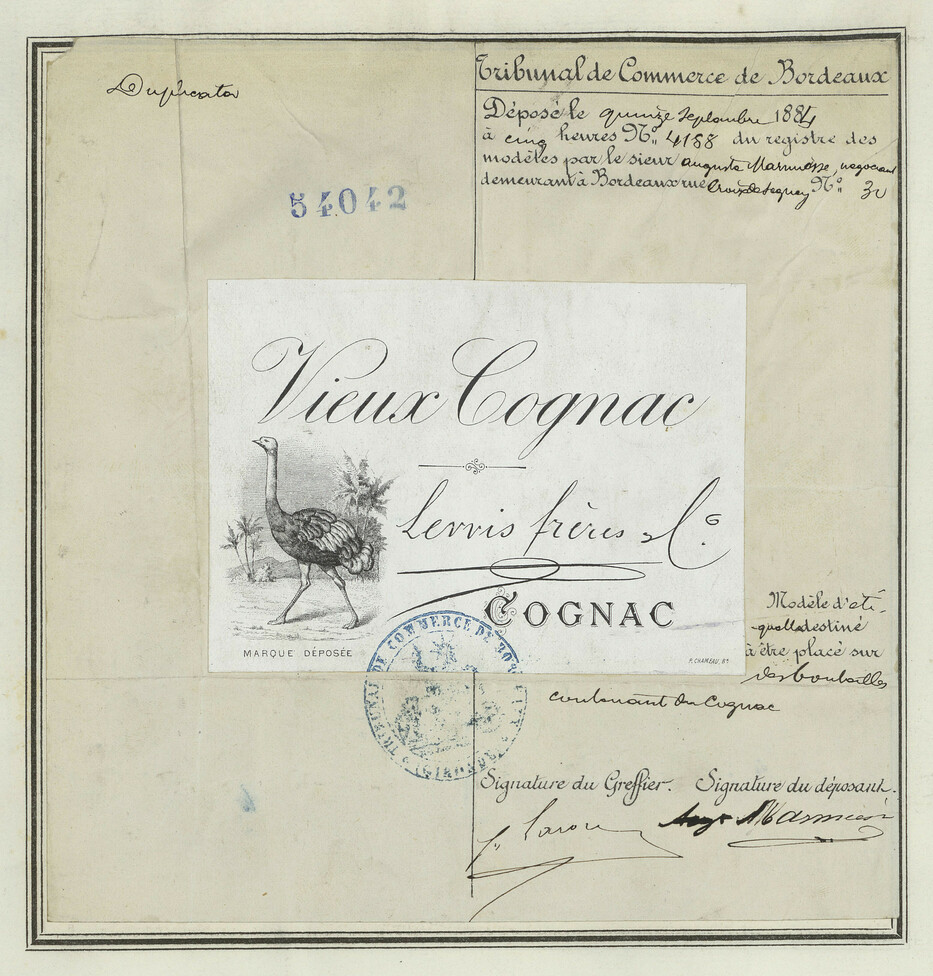 Duplicata
Tribunal de Commerce de Bordeaux
Déposé le quinze Septembre 1884
à cinq heures Nº 4188 du registre des
modèles par le sieur auguste Marmiesse, negociant
demeurant à Bordeaux rue Croix de Seguey Nº 30
54042
Vieux Cognac
Lervis frères & Cº
COGNAC
MARQUE DÉPOSÉE
P. CHAMEAU, Bx
Modèle d'eti-
quette destiné
à être placé sur
des bouteilles
contenant du Cognac
TRIBUNAL DE COMMERCE DE BORDEAUX
(GIRONDE)
Signature du Greffier. Signature du déposant.
Aug Marmiesse